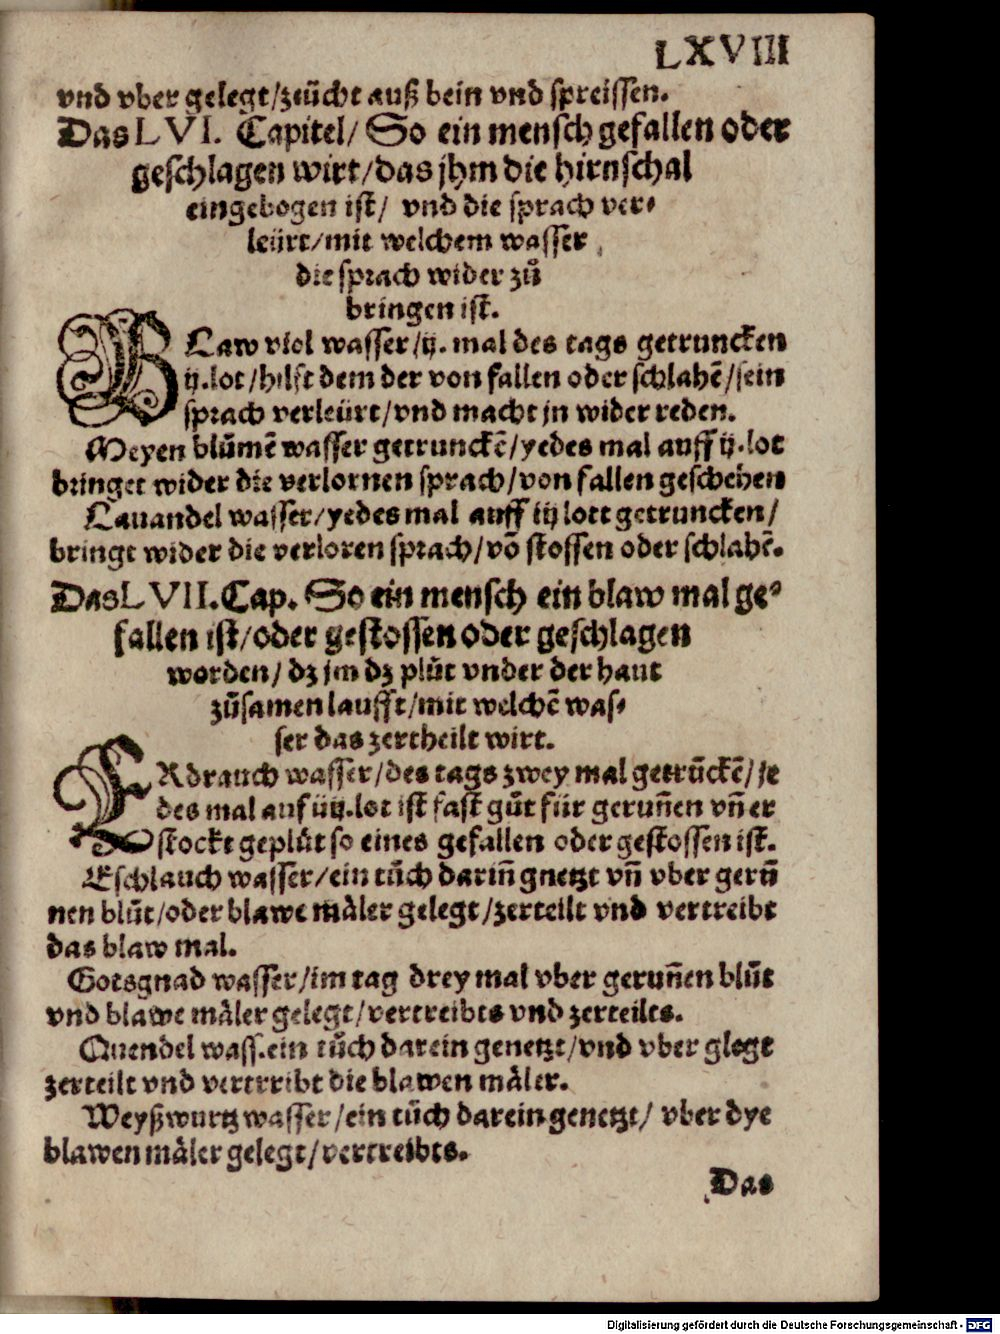 LXVIII
vnd vber gelegt/zeücht auß bein vnd spreissen.
Das LVI. Capitel/ So ein mensch gefallen oder
geschlagen wirt/das jhm die hirnschal
eingebogen ist/ vnd die sprach ver⸗
leürt/mit welchem wasser
die sprach wider zů
bringen ist.
BLaw viol wasser/ij. mal des tags getruncken
ij.lot/hilft dem der von fallen oder schlahē/sein
sprach verleürt/vnd macht jn wider reden.
Meyen blůmē wasser getrunckē/yedes mal auff ij.lot
bringet wider die verlornen sprach/von fallen geschehen
Lauandel wasser/yedes mal auff iij lott getruncken/
bringt wider die verloren sprach/vō stossen oder schlahē.
Das LVII. Cap. So ein mensch ein blaw mal ge⸗
fallen ist/oder gestossen oder geschlagen
worden/ dz jm dz plůt vnder der haut
zůsamen laufft/mit welchē was⸗
ser das zertheilt wirt.
ERdrauch wasser/des tags zwey mal getrūckē/je
des mal auf iiij.lot ist fast gůt für gerunnen vn̄ er
stockt geplůt so eines gefallen oder gestossen ist.
Eschlauch wasser/ein tůch darin̄ gnetzt vn̄ vber gerū
nen blůt/oder blawe måler gelegt/zerteilt vnd vertreibt
das blaw mal.
Gotsgnad wasser/im tag drey mal vber gerun̄en blůt
vnd blawe måler gelegt/vertreibts vnd zerteilts.
Quendel wass.ein tůch darein genetzt/vnd vber glegt
zerteilt vnd vertrribt die blawen måler.
Weyßwurtz wasser/ein tůch darein genetzt/ vber dye
blawen måler gelegt/vertreibts.
Das
Digitalisierung gefördert durch die Deutsche Forschungsgemeinschaft - DFG